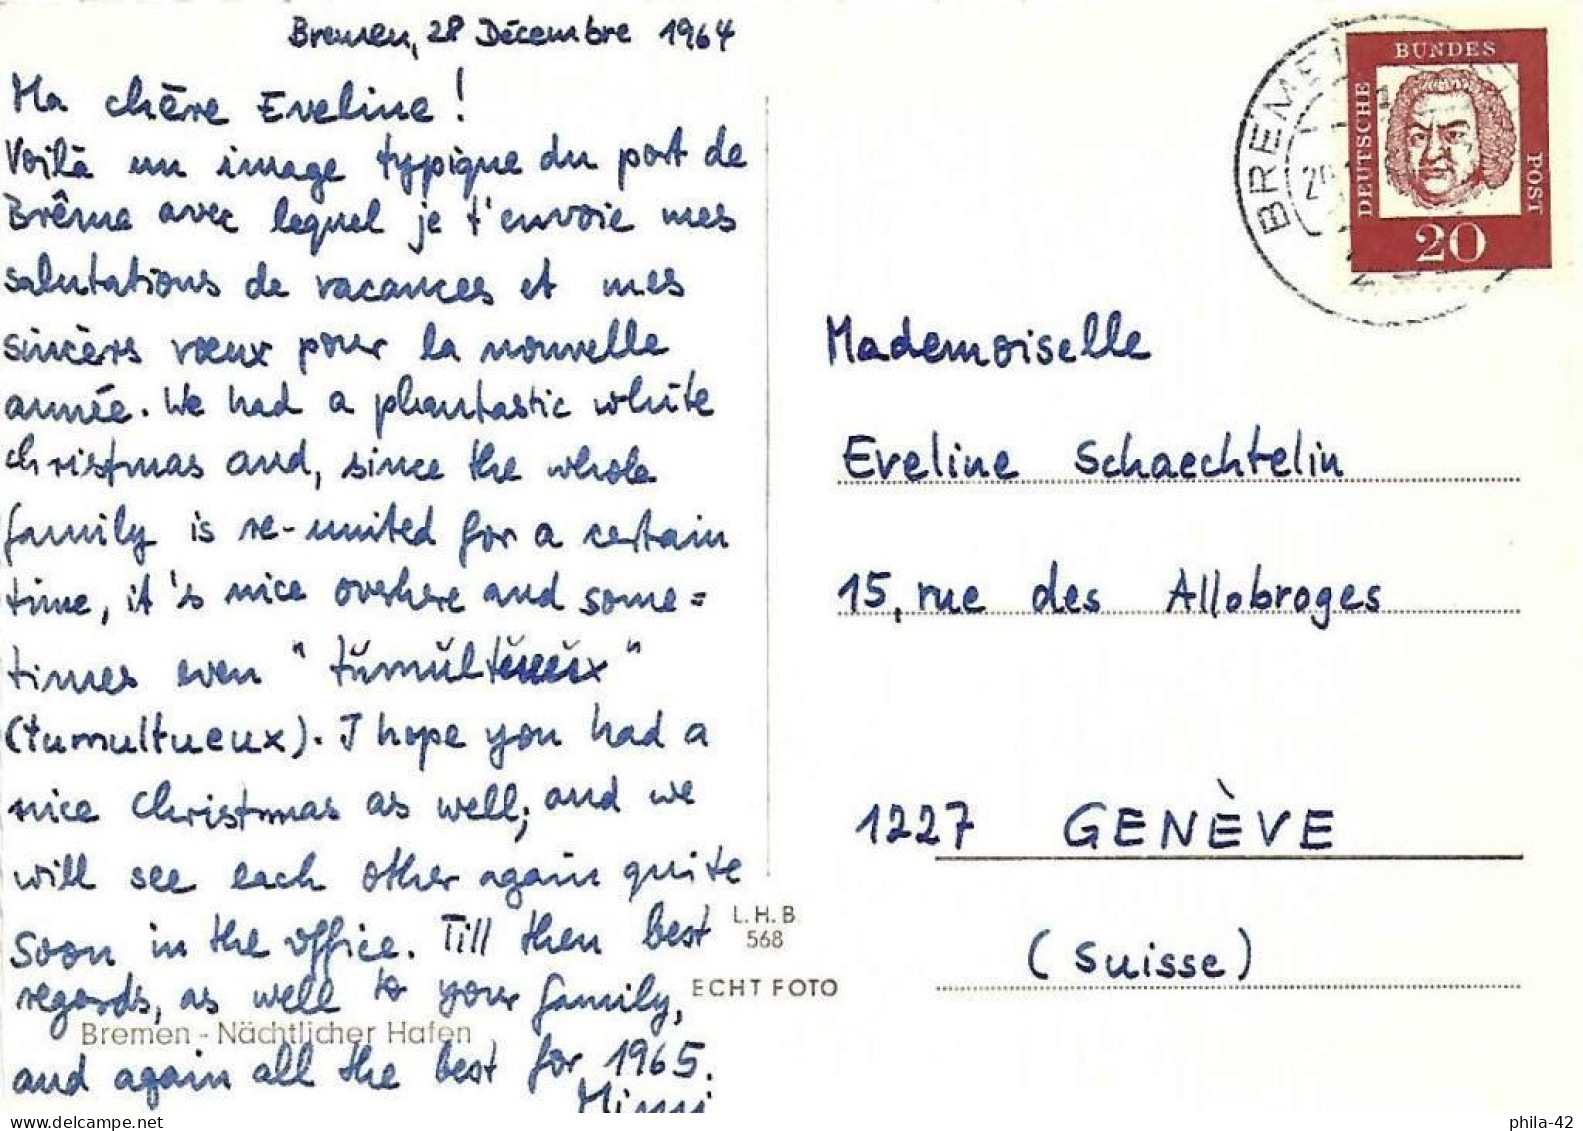 Bremen, 28 Décembre 1964
Ma chère Eveline!
Voilà un image typique du port de
Brême avec lequel je t'envoie mes
salutations de vacances et mes
sincères vœux pour la nouvelle
année. We had a phantastic white
christmas and, since the whole
family is re-united for a certain
time, it's nice overhere and some=
times even "tŭmŭltŭeŭx"
(tumultueux). I hope you had a
nice Christmas as well; and we
will see each other again quite
soon in the office. Till then best
regards, as well to your family,
and again all the best for 1965.
Mimi
Bremen - Nächtlicher Hafen
L.H.B
568
ECHT FOTO
BREMEN
DEUTSCHE
BUNDES
POST
20
Mademoiselle
Eveline Schaechtelin
15, rue des Allobroges
1227 GENÈVE
(Suisse)
delcampe.net
phila-42